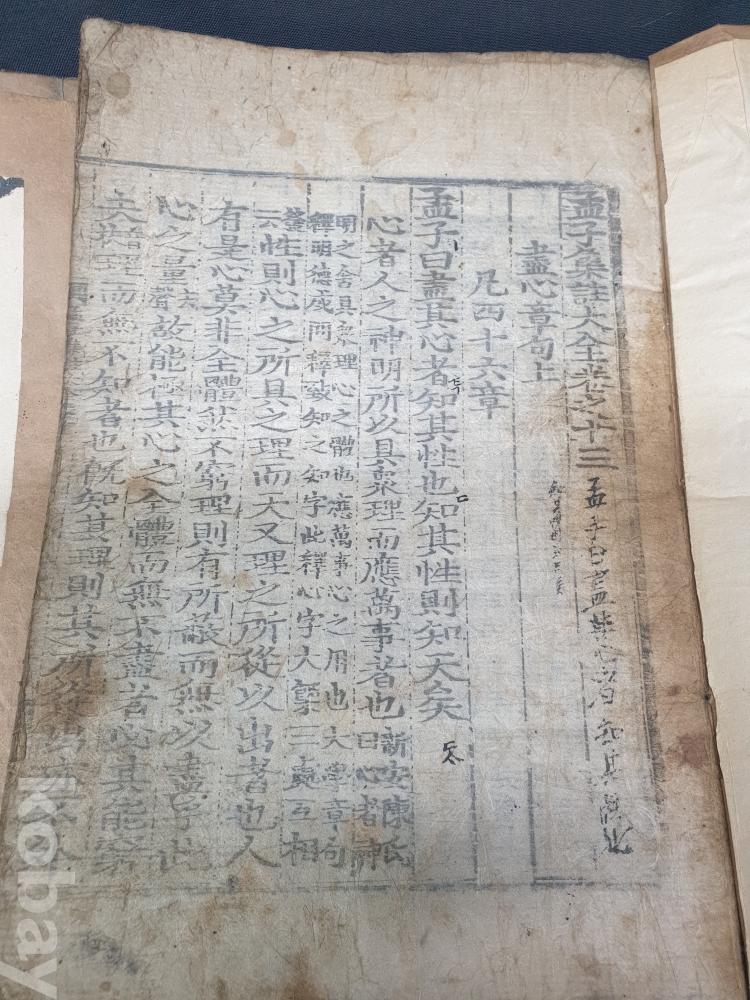 孟子集註大全卷之十三
孟子曰盡其心者知其
盡心章句上
凡四十六章
孟子曰盡其心者知其性也知其性則知天矣
心者人之神明所以具衆理而應萬事者也新安陳氏曰心者神
明之舍具衆理心之體也應萬事心之用也大學章句
釋明德或問釋致知之知字此釋心字大槩三處互相
發云性則心之所具之理而天又理之所從以出者也人
有是心莫非全體然不窮理則有所蔽而無以盡乎此
心之量去聲故能極其心之全體而無不盡者必其能窮
夫音扶理而無不知者也旣知其理則其所從出
kobay